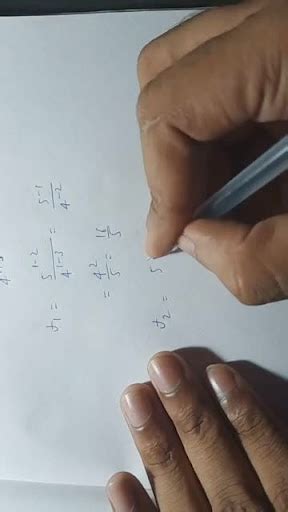 t₁ = 5^(1-2) / 4^(1-3) = 5^-1 / 4^-2
= 4^2 / 5 = 16 / 5
t₂ = 5